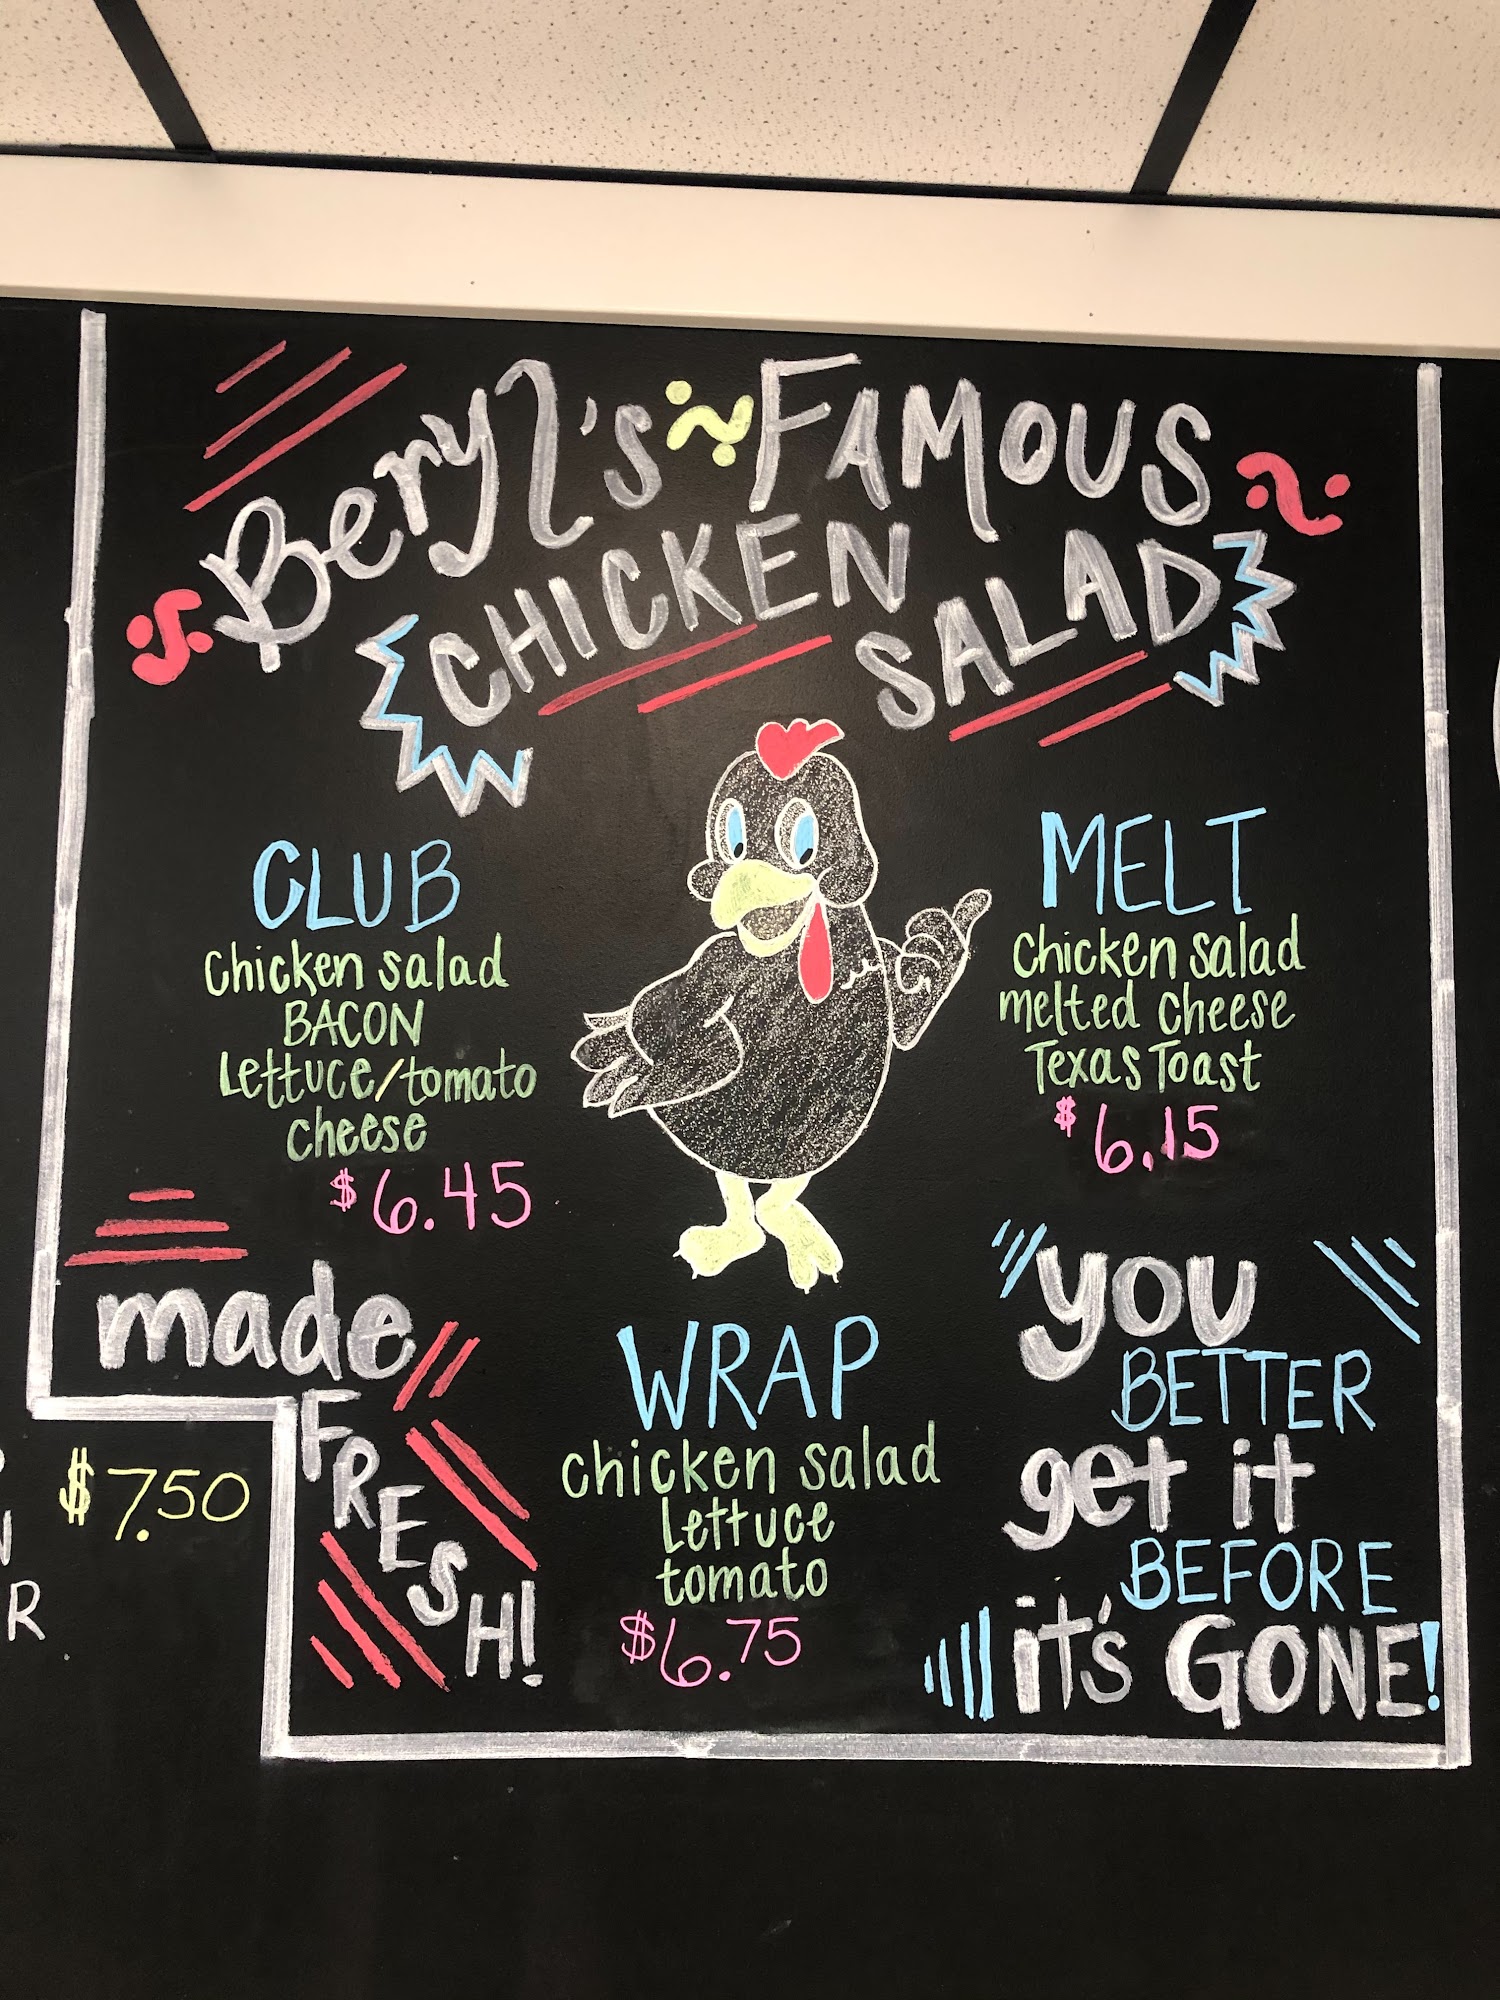 Beryl's FAMOUS
CHICKEN SALAD
CLUB
chicken salad
BACON
Lettuce/tomato
cheese
$6.45
MELT
chicken salad
melted cheese
Texas Toast
$6.15
made
FRESH!
WRAP
chicken salad
Lettuce
tomato
$6.75
you
BETTER
get it
BEFORE
it's GONE!
$7.50
R